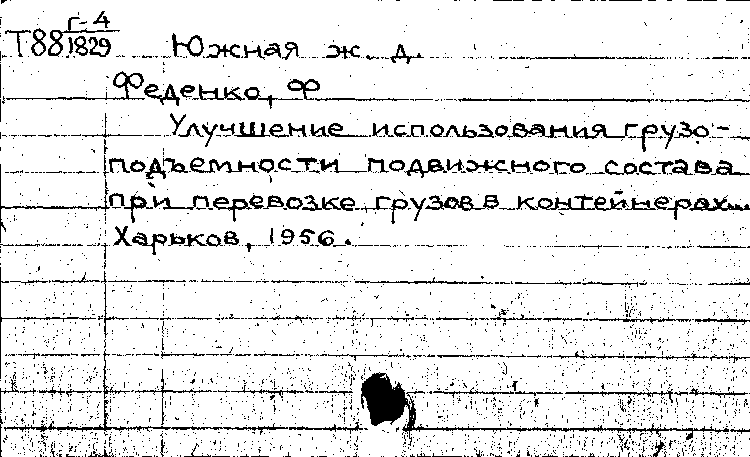 Г-4
Т88/1829 Южная ж. д.
Феденко, Ф
Улучшение использования грузо-
подъемности подвижного состава
при перевозке грузов в контейнерах...
Харьков, 1956.